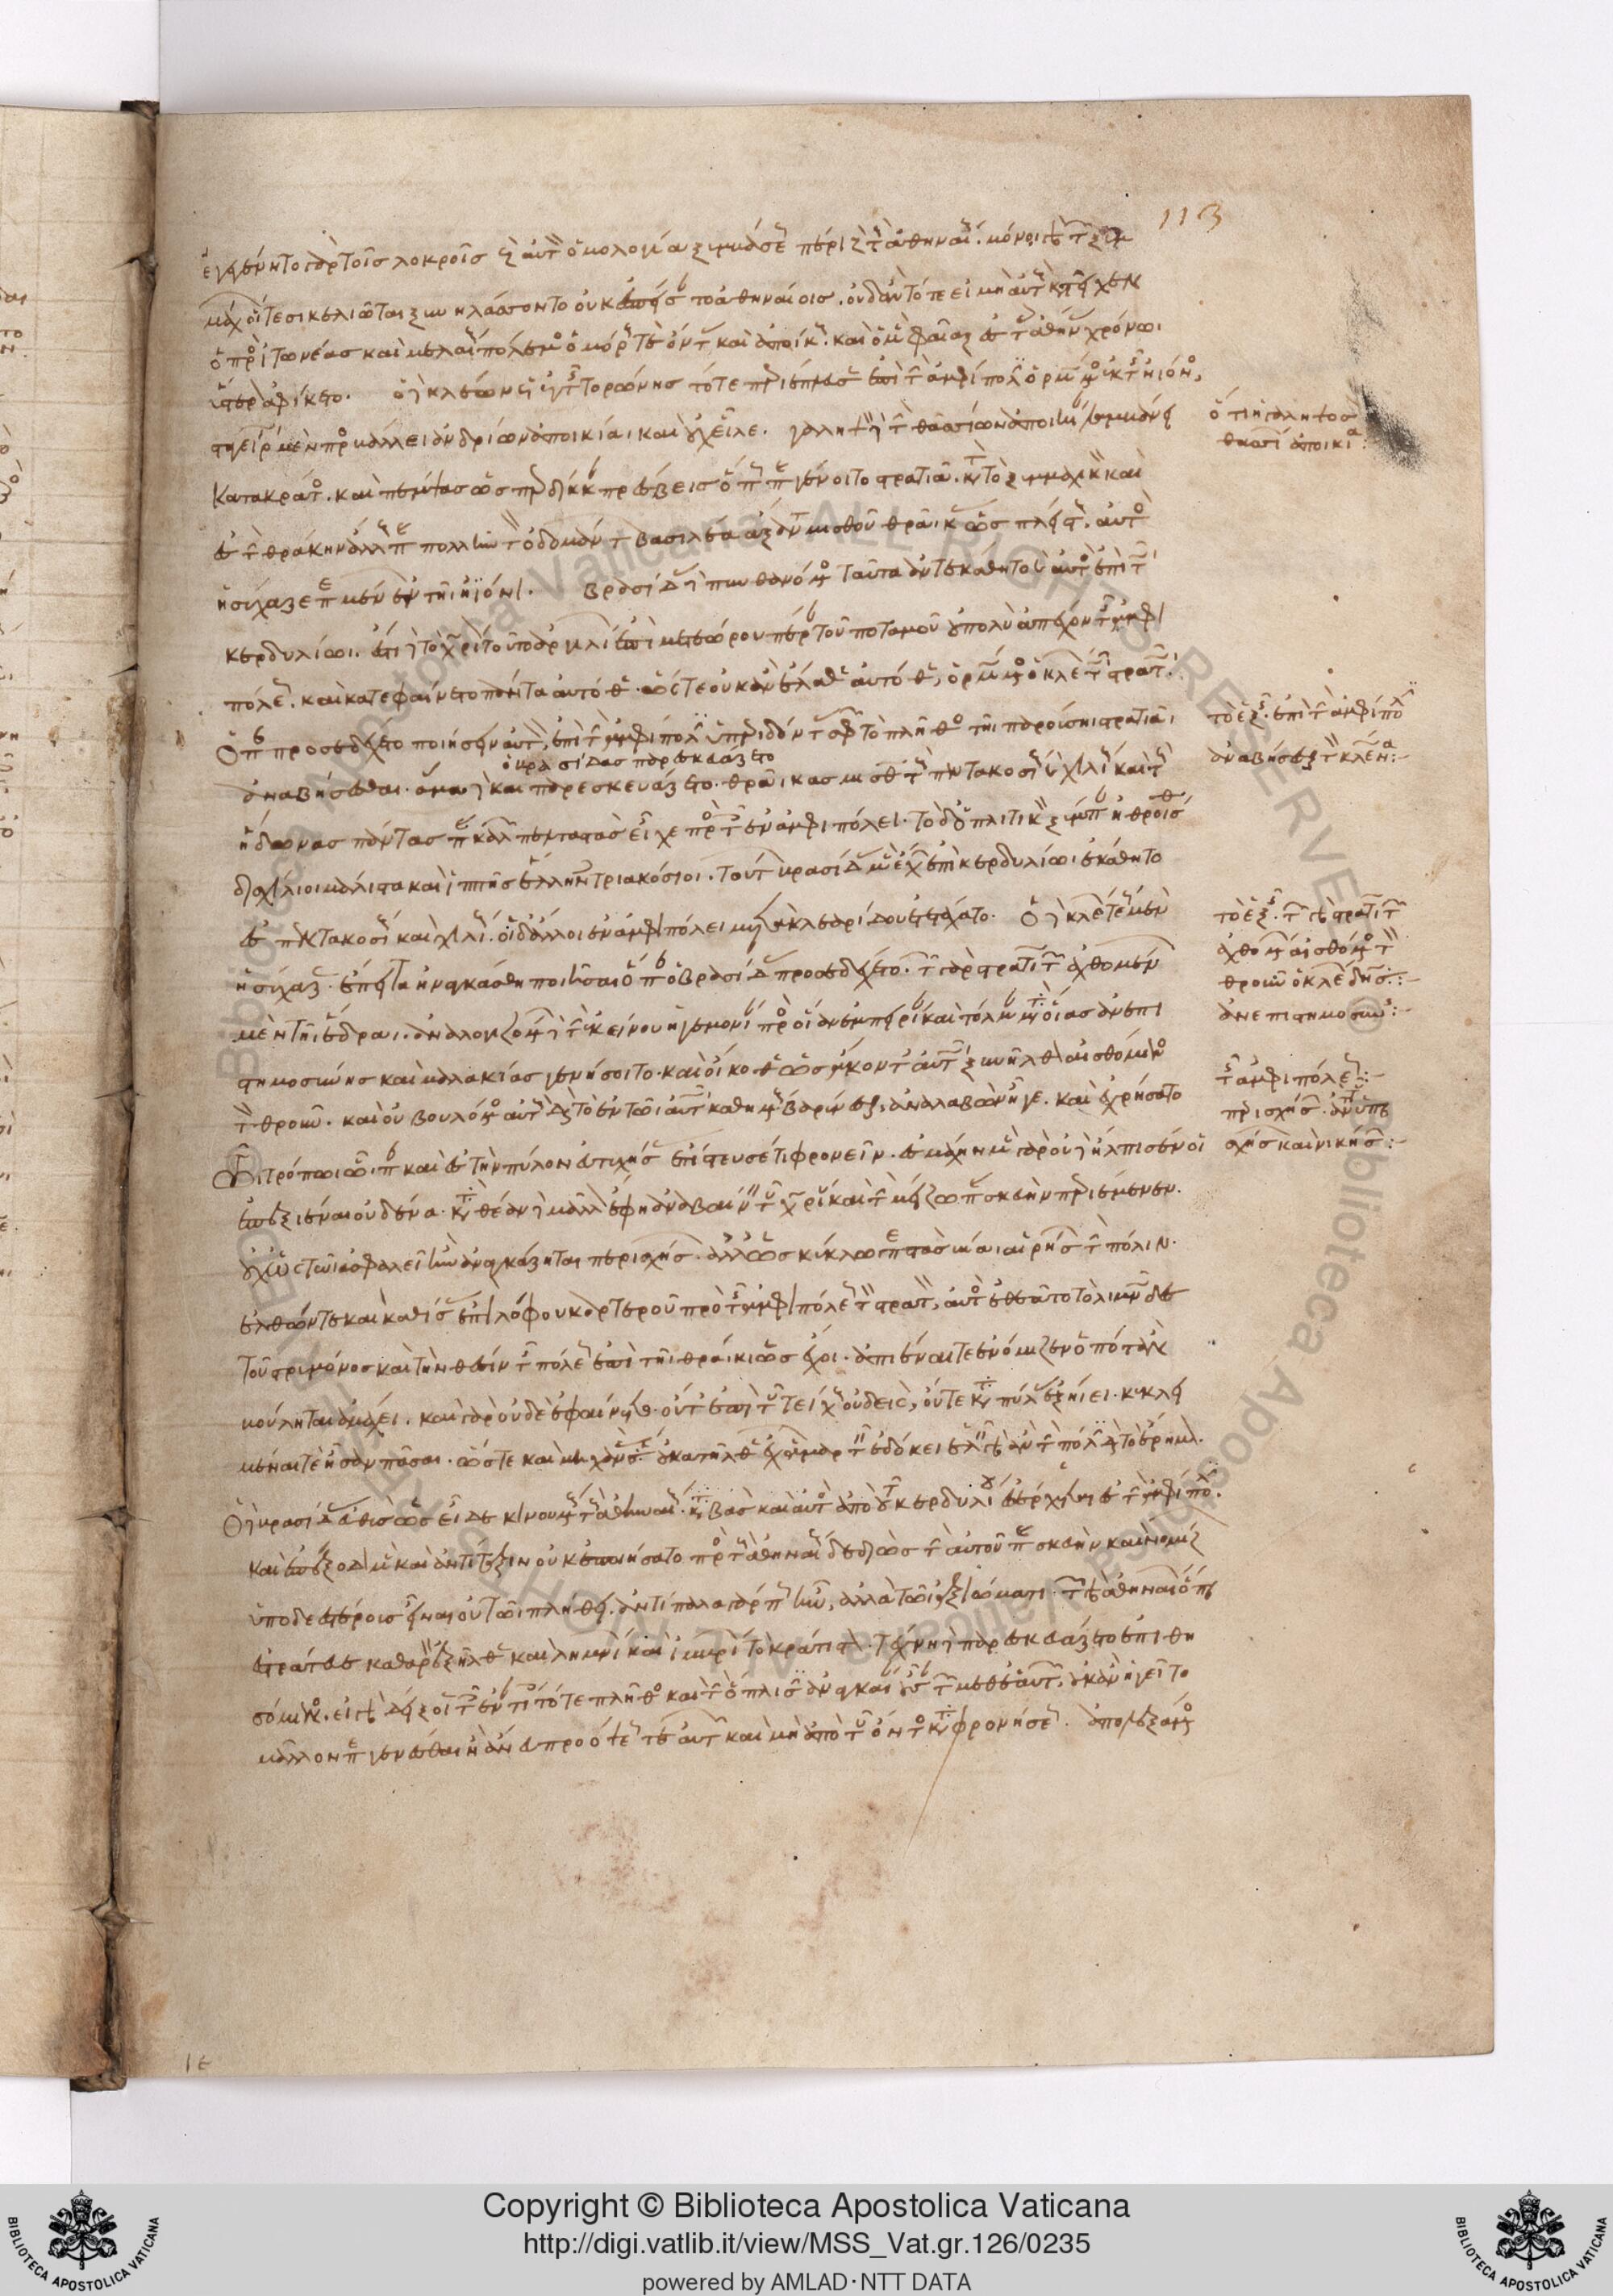 113
ἐγεγένητο γὰρ τοῖς λοκροῖς πρὸς αὐτοὺς ὁμολογία ξυμβάσεως πέρι πρὸς τοὺς ἀθηναίους. μόνοι γὰρ τῶν ξυμ
μάχων ὅτε σικελιῶται ξυνηλλάσσοντο οὐκ ἐσπείσαντο ἀθηναίοις. οὐδ' ἂν τότε εἰ μὴ αὐτοὺς κατεῖχεν
ὁ πρὸς ἰτωνέας καὶ μελαίους πόλεμος ὁμόρους τε ὄντας καὶ ἀποίκους. καὶ ὁ μὲν φαίαξ ἐς τὰς ἀθήνας χρόνωι
ὕστερον ἀφίκετο. ὁ δὲ κλέων ὡς ἐκ τῆς τορώνης τότε περιέπλευσεν ἐπὶ τὴν ἀμφίπολιν ὁρμώμενος ἐκ τῆς ἠϊόνος,
σταγείρωι μὲν προσβάλλει ἀνδρίων ἀποικίαι καὶ οὐχ εἷλε. γαληψὸν δὲ τὴν θασίων ἀποικίαν λαμβάνει
κατακράτος. καὶ πέμψας ὡς περδίκκαν πρέσβεις ὅπως παραγένοιτο στρατιᾶι κατὰ τὸ ξυμμαχικὸν καὶ
ἐς τὴν θράκην ἄλλους παρὰ πολλὴν τὸν ὀδομάντων βασιλέα ἄξοντα μισθοῦ θρᾶικας ὡς πλείστους. αὐτὸς
ἡσύχαζε περιμένων ἐν τῆι ἠϊόνι. βρασίδας δὲ πυνθανόμενος ταῦτα ἀντεκάθητο καὶ αὐτὸς ἐπὶ τῶι
κερδυλίωι. ἔστι δὲ τὸ χωρίον τοῦτο ἀργιλίων ἐπὶ μετεώρου πέραν τοῦ ποταμοῦ οὐ πολὺ ἀπέχον τῆς ἀμφι
πόλεως. καὶ κατεφαίνετο πάντα αὐτόθεν. ὥστε οὐκ ἂν ἔλαθεν αὐτόθεν, ὁρμώμενος ὁ κλέων τῶι στρατῶι.
ὅπερ προσεδέχετο ποιήσειν αὐτὸν, ἐπὶ τὴν ἀμφίπολιν ὑπεριδόντα σφῶν τὸ πλῆθος τῆι παρούσηι στρατιᾶι,
ὁ βρασίδας παρεσκευάζετο
ἀναβήσεσθαι. ἅμα δὲ καὶ παρεσκευάζετο θρᾶικας μισθωτοὺς πεντακοσίους καὶ χιλίους καὶ τοὺς
ἠδῶνας πάντας παρακαλῶν πελταστὰς εἶχε πρὸς τοῖς ἐν ἀμφιπόλει. τὸ δ' ὁπλιτικὸν ξύμπαν ἠθροίσθη
δισχίλιοι μάλιστα καὶ ἱππῆς ἕλληνες τριακόσιοι. τούτων βρασίδας μὲν ἔχων ἐπὶ κερδυλίωι ἐκάθητο
ἐς πεντακοσίους καὶ χιλίους. οἱ δ' ἄλλοι ἐν ἀμφιπόλει μετὰ κλεαρίδου ἐτετάχατο. ὁ δὲ κλέων τέως μὲν
ἡσύχαζεν. ἔπειτα ἠναγκάσθη ποιῆσαι ὅπερ ὁ βρασίδας προσεδέχετο. τῶν γὰρ στρατιωτῶν ἀχθομένων
μὲν τῆι ἕδραι. ἀναλογιζομένων δὲ τὴν ἐκείνου ἡγεμονίαν πρὸς οἵαν ἐμπειρίαν καὶ τόλμαν μετὰ οἵας ἀνεπι
στημοσύνης καὶ μαλακίας γενήσοιτο. καὶ οἴκοθεν ὡς ἄκοντες αὐτῶι ξυνῆλθον αἰσθόμενος
τὸν θροῦν. καὶ οὐ βουλόμενος αὐτοὺς διὰ τὸ ἐν τῶι αὐτῶι καθημένους βαρύνεσθαι, ἀναλαβὼν ἦγε. καὶ ἐχρήσατο
τῶι τρόπωι ὧιπερ καὶ ἐς τὴν πύλον εὐτυχήσας ἐπίστευσέ τι φρονεῖν. ἐς μάχην μὲν γὰρ οὐδὲ ἤλπισέν οἱ
ἐπεξιέναι οὐδένα. κατὰ θέαν δὲ μᾶλλον ἔφη ἀναβαίνειν τοῦ χωρίου καὶ τὴν μείζω παρασκευὴν περιέμενεν.
οὐχ ὡς τῶι ἀσφαλεῖ ἢν ἀναγκάζηται περισχήσων. ἀλλ' ὡς κύκλωι περιστὰς βίαι αἱρήσων τὴν πόλιν.
ἐλθών τε καὶ καθίσας ἐπὶ λόφου καρτεροῦ πρὸ τῆς ἀμφιπόλεως τὸν στρατόν, αὐτὸς ἐθεᾶτο τὸ λιμνῶδες
τοῦ στρυμόνος καὶ τὴν θέσιν τῆς πόλεως ἐπὶ τῆι θράικηι ὡς ἔχοι. ἀπιέναι τε ἐνόμιζεν ὁπόταν
βούληται ἀμαχεί. καὶ γὰρ οὐδὲ ἐφαίνετο οὔτ' ἐπὶ τοῦ τείχους οὐδείς, οὔτε κατὰ πύλας ἐξήιει. κεκληι
μέναι τε ἦσαν πᾶσαι. ὥστε καὶ μηχανὰς ὅτι οὐ κατῆλθεν ἔχων ἁμαρτεῖν ἐδόκει ἑλεῖν γὰρ ἂν τὴν πόλιν διὰ τὸ ἐρῆμον.
ὁ δὲ βρασίδας εὐθὺς ὡς εἶδε κινουμένους τοὺς ἀθηναίους. καταβὰς καὶ αὐτὸς ἀπὸ τοῦ κερδυλίου ἐσέρχεται ἐς τὴν ἀμφίπολιν.
καὶ ἐπέξοδον μὲν καὶ ἀντίταξιν οὐκ ἐποιήσατο πρὸς τοὺς ἀθηναίους δεδιὼς τὴν αὑτοῦ παρασκευὴν καὶ νομίζων
ὑποδεεστέρους εἶναι οὐ τῶι πλήθει. ἀντίπαλα γὰρ πως ἦν, ἀλλὰ τῶι ἀξιώματι. τῶν γὰρ ἀθηναίων ὅπερ
ἐστράτευε καθαρὸν ἐξῆλθε καὶ λημνίων καὶ ἰμβρίων τὸ κράτιστον. τέχνηι δὲ παρεσκευάζετο ἐπιθη
σόμενος. εἰ γὰρ δείξειε τοῖς ἐναντίοις τό τε πλῆθος καὶ τὴν ὅπλισιν ἀναγκαίαν οὖσαν τῶν μεθ' ἑαυτοῦ, οὐκ ἂν ἡγεῖτο
μᾶλλον περιγενέσθαι ἢ ἄνευ προόψεώς τε αὐτῶν καὶ μὴ ἀπὸ τοῦ ὄντος καταφρονήσεως. ἀπολεξάμενος
ὅτι ἡ γαληψὸς
θασίων ἀποικία:
τὸ ἑξῆς. ἐπὶ τὴν ἀμφίπολιν
ἀναβήσεσθαι τὸν κλέωνα:
τὸ ἑξῆς. τῶν γὰρ στρατιωτῶν
ἀχθομένων αἰσθόμενος τὸν
θροῦν ὁ κλέων
ἀνεπιστημοσύνη:
τῆς ἀμφιπόλεως:
περισχήσων. ἀντὶ τοῦ ὑπερ
σχήσων καὶ νικήσων:
ιε
Copyright © Biblioteca Apostolica Vaticana
http://digi.vatlib.it/view/MSS_Vat.gr.126/0235
powered by AMLAD·NTT DATA
BIBLIOTECA APOSTOLICA VATICANA
BIBLIOTECA APOSTOLICA VATICANA